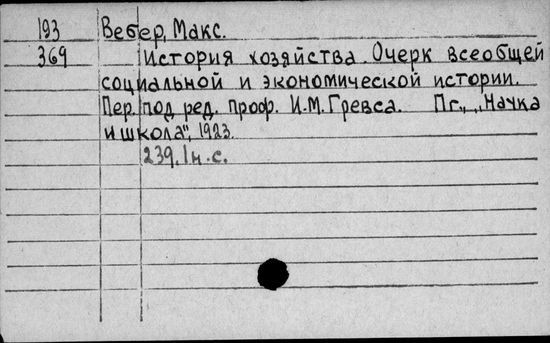 193 Вебер, Макс.
369 История хозяйства. Очерк всеобщей
социальной и экономической истории.
Пер. под ред. проф. И.М. Гревса. Пг., „Наука
и школа", 1923.
239, 1 н. с.